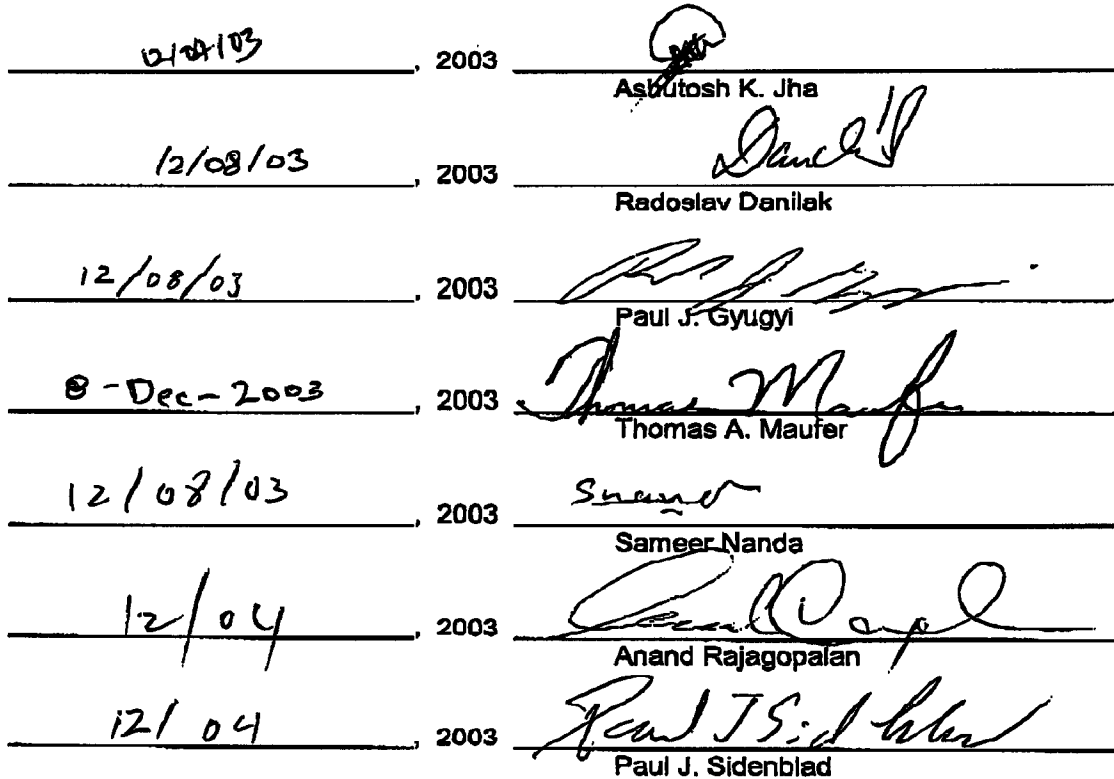 12/04/03, 2003
Ashutosh K. Jha
12/08/03, 2003
Radoslav Danilak
12/08/03, 2003
Paul J. Gyugyi
8-Dec-2003, 2003 Thomas Maufer
Thomas A. Maufer
12/08/03, 2003 Snand
Sameer Nanda
12/04, 2003
Anand Rajagopalan
12/04, 2003 Paul J Sidenblad
Paul J. Sidenblad